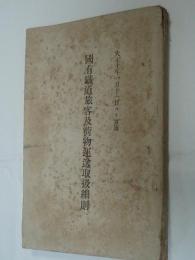 大正十年一月十一日ヨリ實施
國有鐵道旅客及荷物運送取扱細則